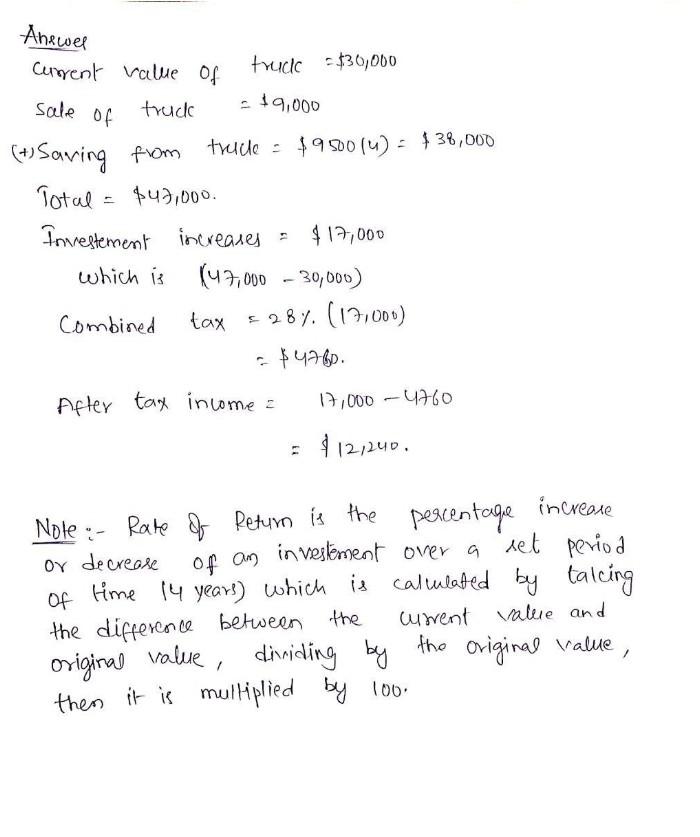 Answer
Current value of truck = $30,000
Sale of truck = $9,000
(+) Saving from truck = $9500(4) = $38,000
Total = $47,000.
Investement increases = $17,000
which is (47,000 - 30,000)
Combined tax = 28%. (17,000)
= $4760.
After tax income = 17,000 - 4760
= $12,240.
Note :- Rate of Return is the percentage increase
or decrease of an investement over a set period
of time (4 years) which is calculated by taking
the difference between the current value and
original value, dividing by the original value,
then it is multiplied by 100.